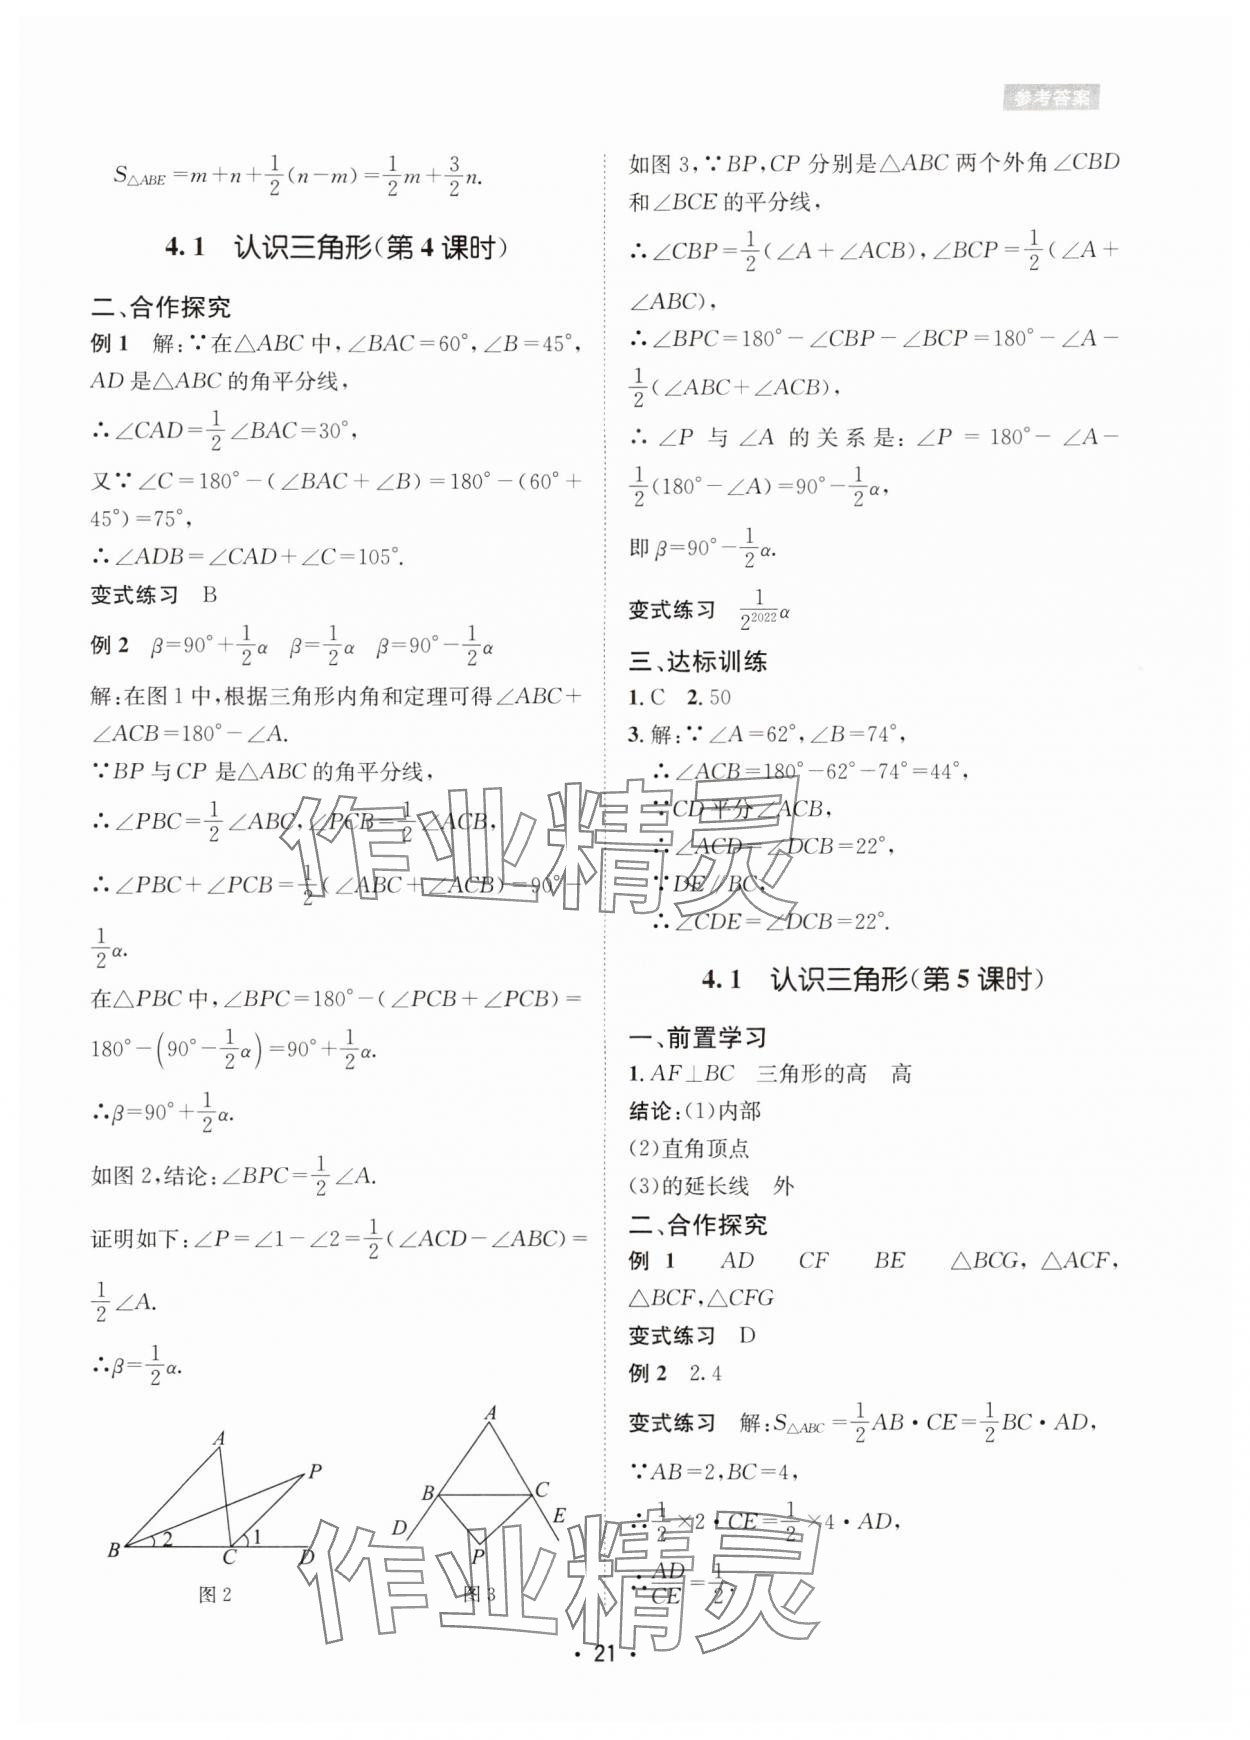 参考答案
S△ABE=m+n+1/2(n-m)=1/2m+3/2n.
4.1 认识三角形(第4课时)
二、合作探究
例1 解:∵在△ABC中,∠BAC=60°,∠B=45°,
AD是△ABC的角平分线,
∴∠CAD=1/2∠BAC=30°,
又∵∠C=180°-(∠BAC+∠B)=180°-(60°+
45°)=75°,
∴∠ADB=∠CAD+∠C=105°.
变式练习 B
例2 β=90°+1/2α β=1/2α β=90°-1/2α
解:在图1中,根据三角形内角和定理可得∠ABC+
∠ACB=180°-∠A.
∵BP与CP是△ABC的角平分线,
∴∠PBC=1/2∠ABC,∠PCB=1/2∠ACB,
∴∠PBC+∠PCB=1/2(∠ABC+∠ACB)=90°-
1/2α.
在△PBC中,∠BPC=180°-(∠PCB+∠PCB)=
180°-(90°-1/2α)=90°+1/2α.
∴β=90°+1/2α.
如图2,结论:∠BPC=1/2∠A.
证明如下:∠P=∠1-∠2=1/2(∠ACD-∠ABC)=
1/2∠A.
∴β=1/2α.
A
P
B
2
C
1
D
图2
A
B
C
D
E
P
图3
如图3,∵BP,CP分别是△ABC两个外角∠CBD
和∠BCE的平分线,
∴∠CBP=1/2(∠A+∠ACB),∠BCP=1/2(∠A+
∠ABC),
∴∠BPC=180°-∠CBP-∠BCP=180°-∠A-
1/2(∠ABC+∠ACB),
∴∠P与∠A的关系是:∠P=180°-∠A-
1/2(180°-∠A)=90°-1/2α,
即β=90°-1/2α.
变式练习 1/2^2022 α
三、达标训练
1.C 2.50
3.解:∵∠A=62°,∠B=74°,
∴∠ACB=180°-62°-74°=44°,
∵CD平分∠ACB,
∴∠ACD=∠DCB=22°,
∵DE∥BC,
∴∠CDE=∠DCB=22°.
4.1 认识三角形(第5课时)
一、前置学习
1.AF⊥BC 三角形的高 高
结论:(1)内部
(2)直角顶点
(3)的延长线 外
二、合作探究
例1 AD CF BE △BCG,△ACF,
△BCF,△CFG
变式练习 D
例2 2.4
变式练习 解:S△ABC=1/2AB·CE=1/2BC·AD,
∵AB=2,BC=4,
∴1/2×2·CE=1/2×4·AD,
∴AD/CE=1/2.
·21·
作业精灵
作业精灵